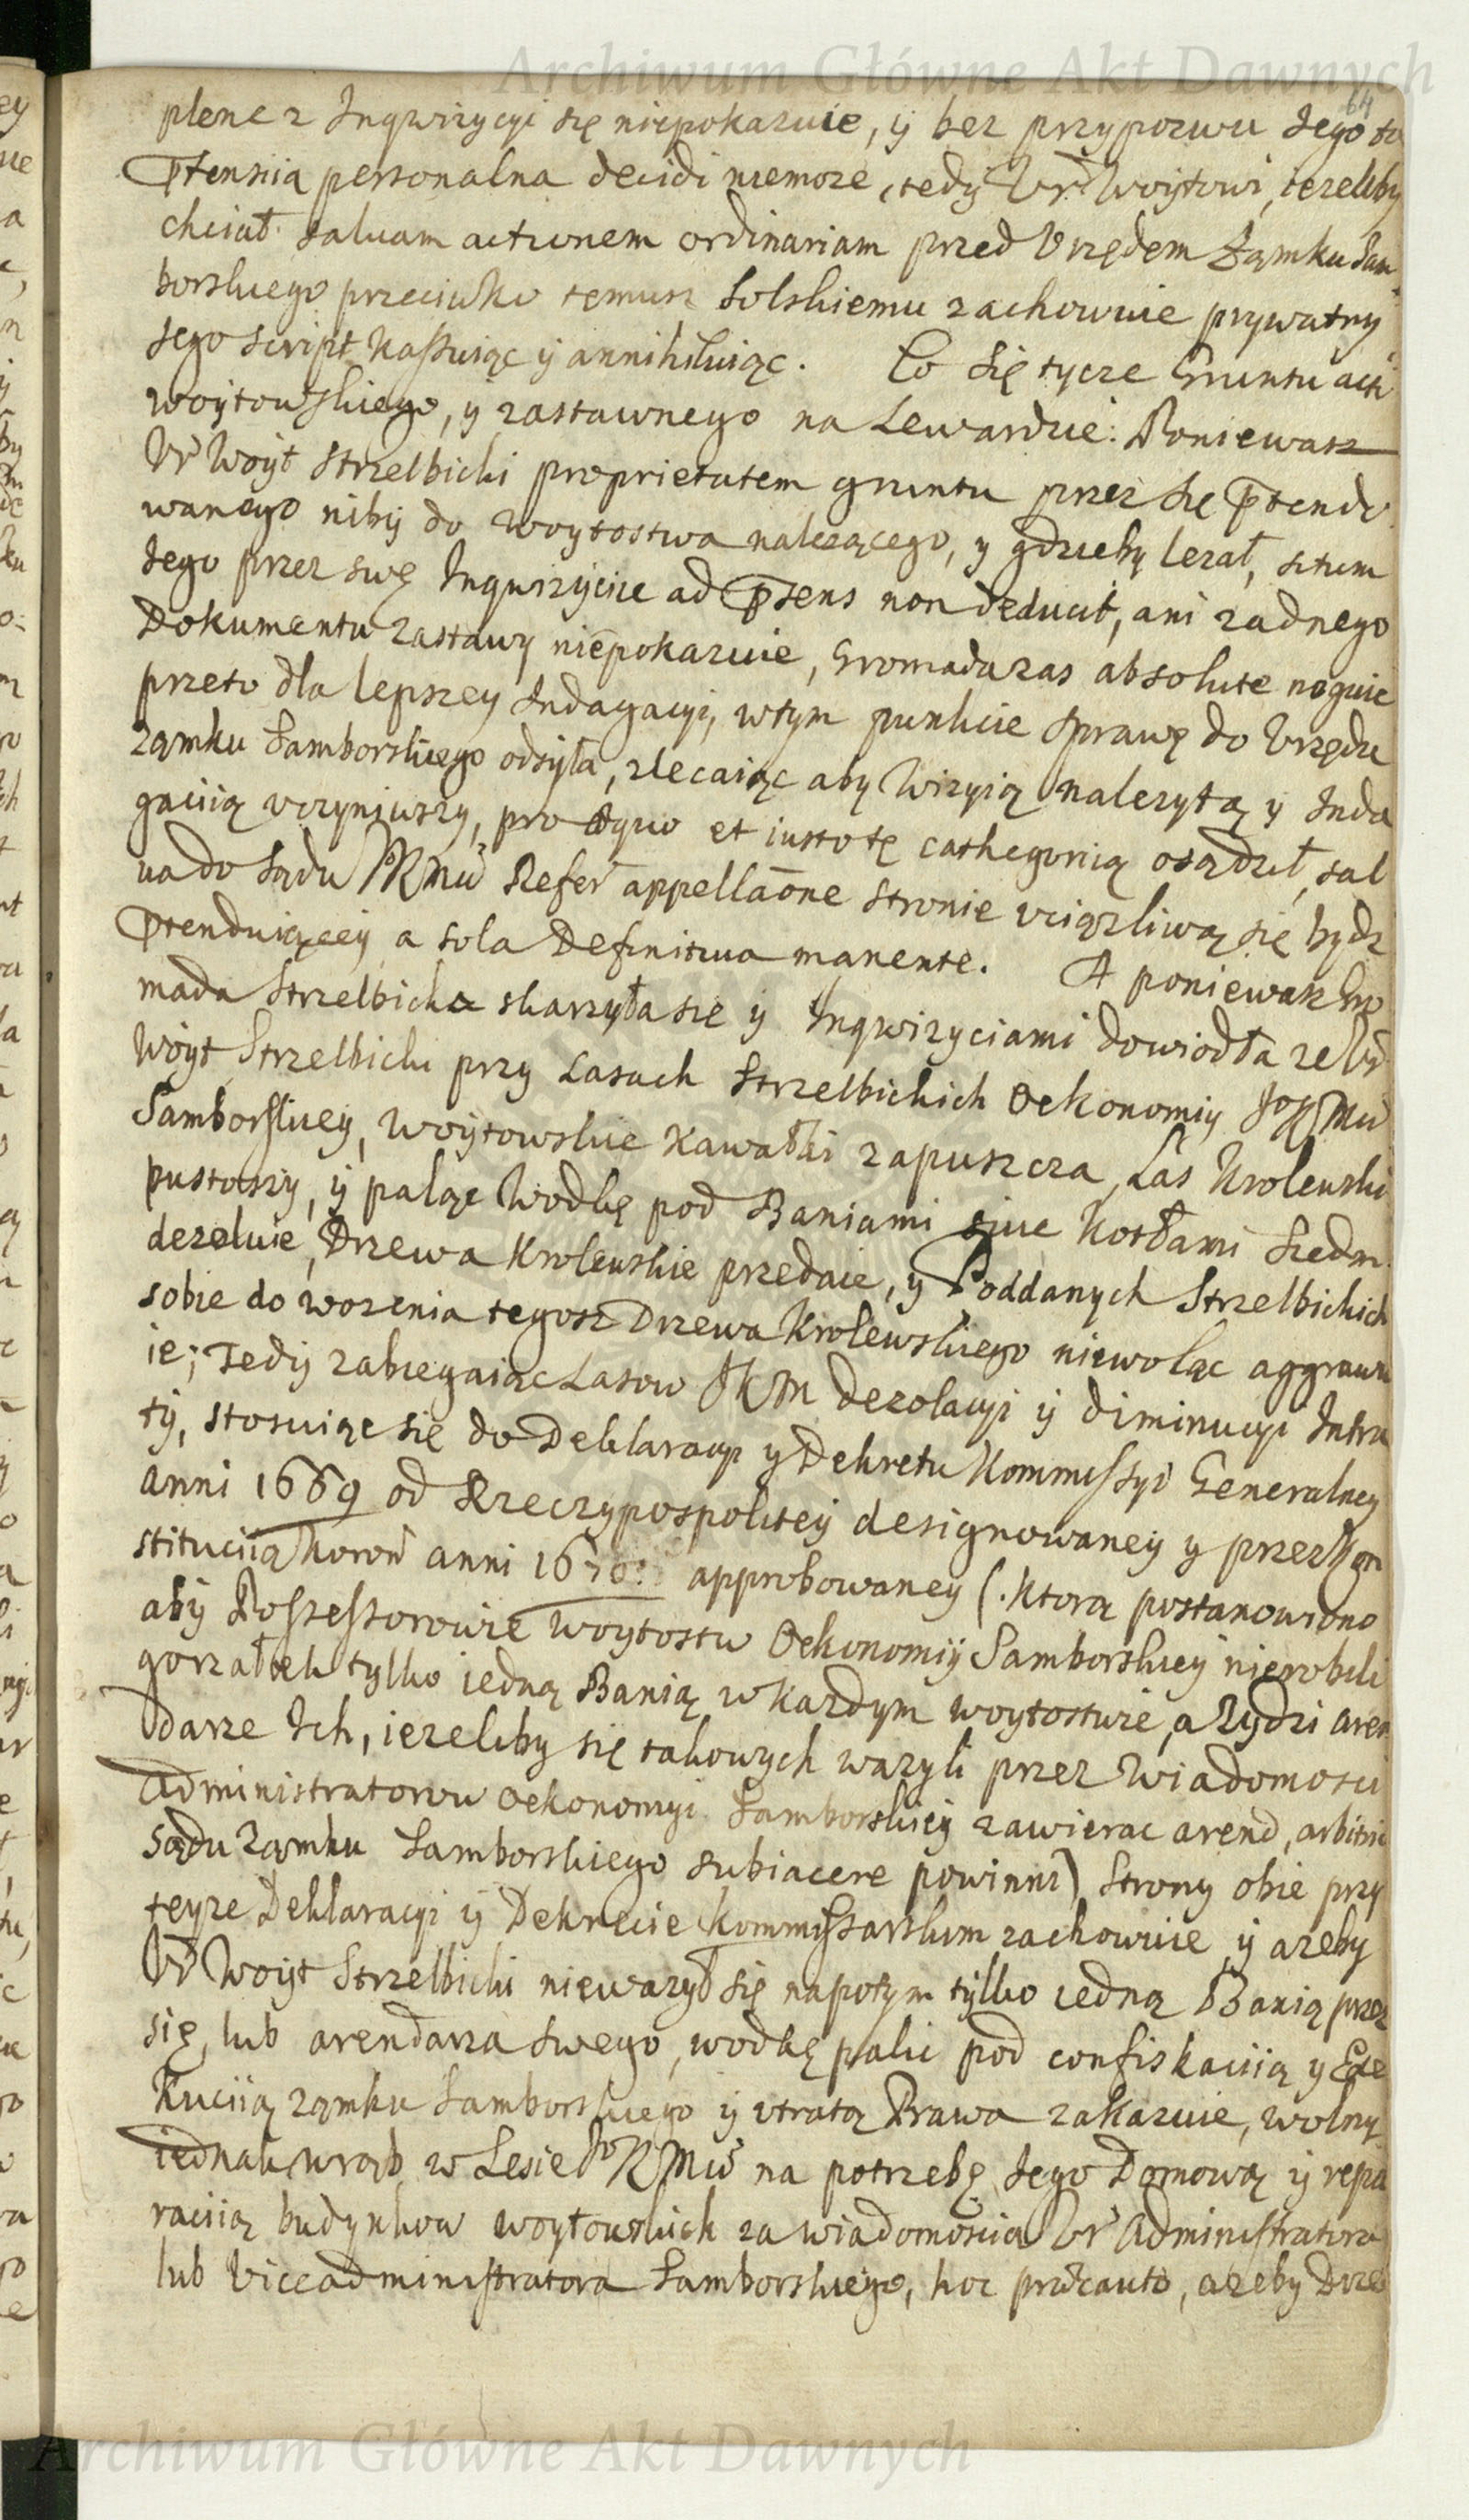 Archiwum Główne Akt Dawnych
64
plene z Inqwizycyi się niepokazuie, ÿ bez przypozwu Jego ta
Ptensiia personalna decidi niemoze, tedÿ Vr Woÿtowi, iezeliby
chciał saluam actionem ordinariam przed Vrzędem Zamku Sam
borskiego przeciwko temusz Solskiemu zachowuie prywatny
Jego script kassuiąc ÿ annihiluiąc. Co się tycze Gruntu
woytowskiego, ÿ zastawnego na Lewardzie: Poniewasz
Vr Woÿt Strzelbicki proprietatem gruntu przez się Ptendo
wanego nibÿ do woytostwa nalezącego, y gdzieby lezał, situm
Jego przez swę Inqwizÿciie ad Ptens non deducit, ani zadnego
Dokumentu zastawy niepokazuie, Gromada zas absolute neguie
przeto dla lepszey Indagacyi, wtym punkcie sprawę do Vrzędu
Zamku Samborskiego odsÿła, zlecaiąc aby Wizyią nalezytą y Inda
gaciią vczyniwszy, pro aquo et iusto tę cathegorią osądził, sal
ua do Sądu JKMci Refer appellaōne stronie vciązliwą się bydz
Ptenduiącey a sola Definitiua manente. A poniewasz Gro
mada Strzelbicka skarzyła się ÿ Inqwizyciami dowiodła ze Vr
Woÿt Strzelbicki przy Lasach Strzelbickich Oekonomiy JoKMci
Samborskiey, Woÿtowskie Kawałki zapuszcza, Las Krolewski
pustoszy, ÿ paląc Wodkę pod Baniami siue Kotłami siedm
dezoluie, Drzewa Krolewskie przedaie, y Poddanych Strzelbickich
sobie do wozenia tegosz Drzewa Krolewskiego niewoląc aggrawu
ie; Tedÿ zabiegaiąc Lasow JKM dezolacyi ÿ diminucyi Intra
tÿ, stosuiąc się do Deklaracyi y Dekretu Kommissyi Generalney
Anni 1669 od Rzeczypospolitey designowaneÿ y przez Kon
stituciią Koron anni 1670: approbowaney (. Ktorą postanowiono
abÿ Possessorowie woytostw Oekonomiÿ Samborskiey nierobili
gorzałek tylko iedną Banią w kazdym woytostwie, a Zydzi aren
darze Ich, iezeliby się takowych wazyli przez wiadomosci
Administratorow Oekonomyi Samborskieÿ zawierac arend, arbitrio
Sądu Zamku Samborskiego subiacere powinni) Strony obie przy
teyze Deklaracyi ÿ Dekrecie Kommissarskim zachowuie, ÿ azeby
Vr Woÿt Strzelbicki niewazył się napotym tÿlko iedną Banią przez
się, lub arendarza swego, wodkę palic pod confiskaciią y Exe
Kuciią Zamku Samborskiego ÿ vtratą Prawa zakazuie, wolny
iednak wrąb w Lesie JoKMci na potrzebę Jego Domową ÿ repa
raciią budynkow woytowskich za wiadomoscią Vr Administratora
lub Viceadministratora Samborskiego, hoc praecauto, azeby Drze
Archiwum Główne Akt Dawnych